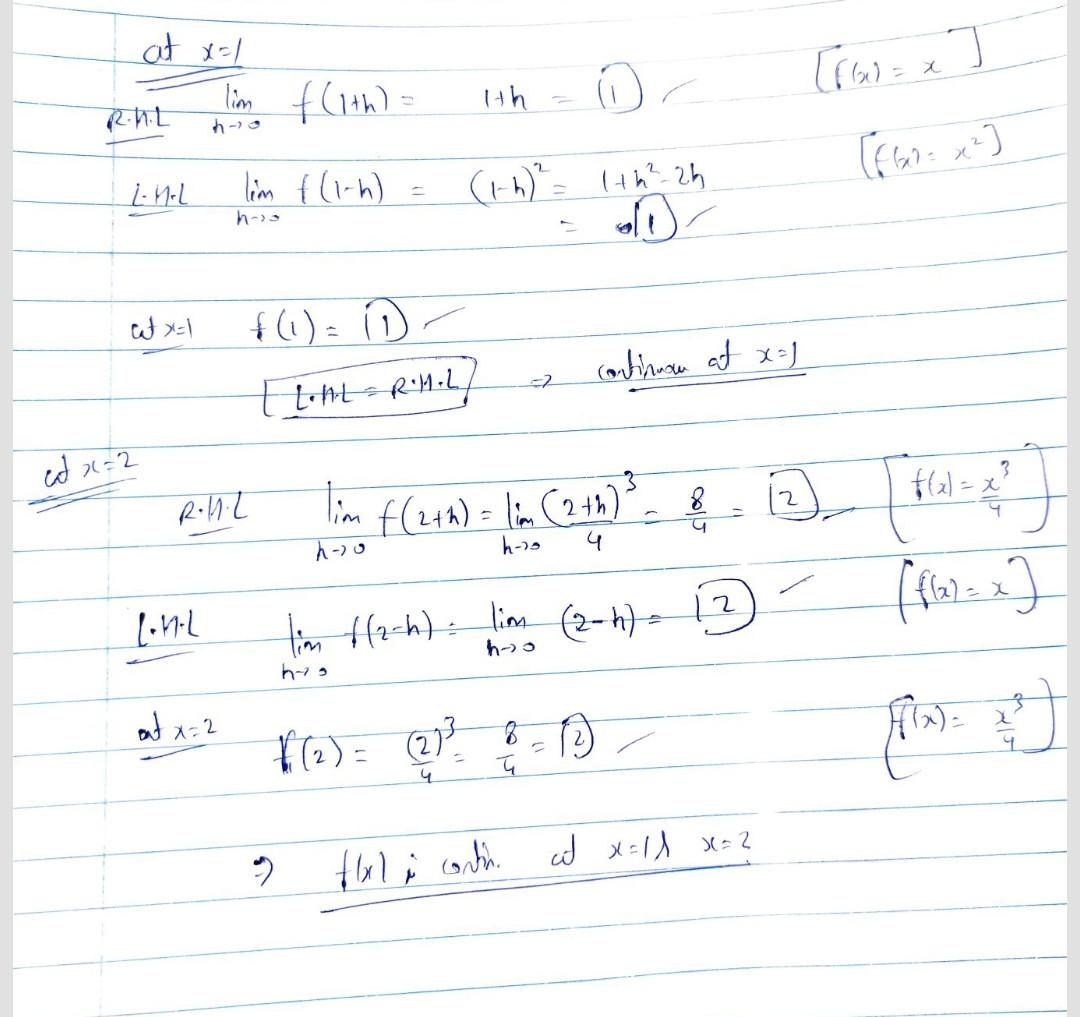 at x=1
R.H.L lim h→0 f(1+h) = 1+h = 1 [f(x) = x]
L.H.L lim h→0 f(1-h) = (1-h)² = 1+h²-2h [f(x) = x²]
= 1
at x=1 f(1) = 1
[L.H.L = R.H.L] ⇒ continuous at x=1
at x=2
R.H.L lim h→0 f(2+h) = lim h→0 (2+h)³/4 = 8/4 = 2 [f(x) = x³/4]
L.H.L lim h→0 f(2-h) = lim h→0 (2-h) = 2 [f(x) = x]
at x=2 f(2) = (2)³/4 = 8/4 = 2 [f(x) = x³/4]
⇒ f(x) is contin. at x=1 & x=2